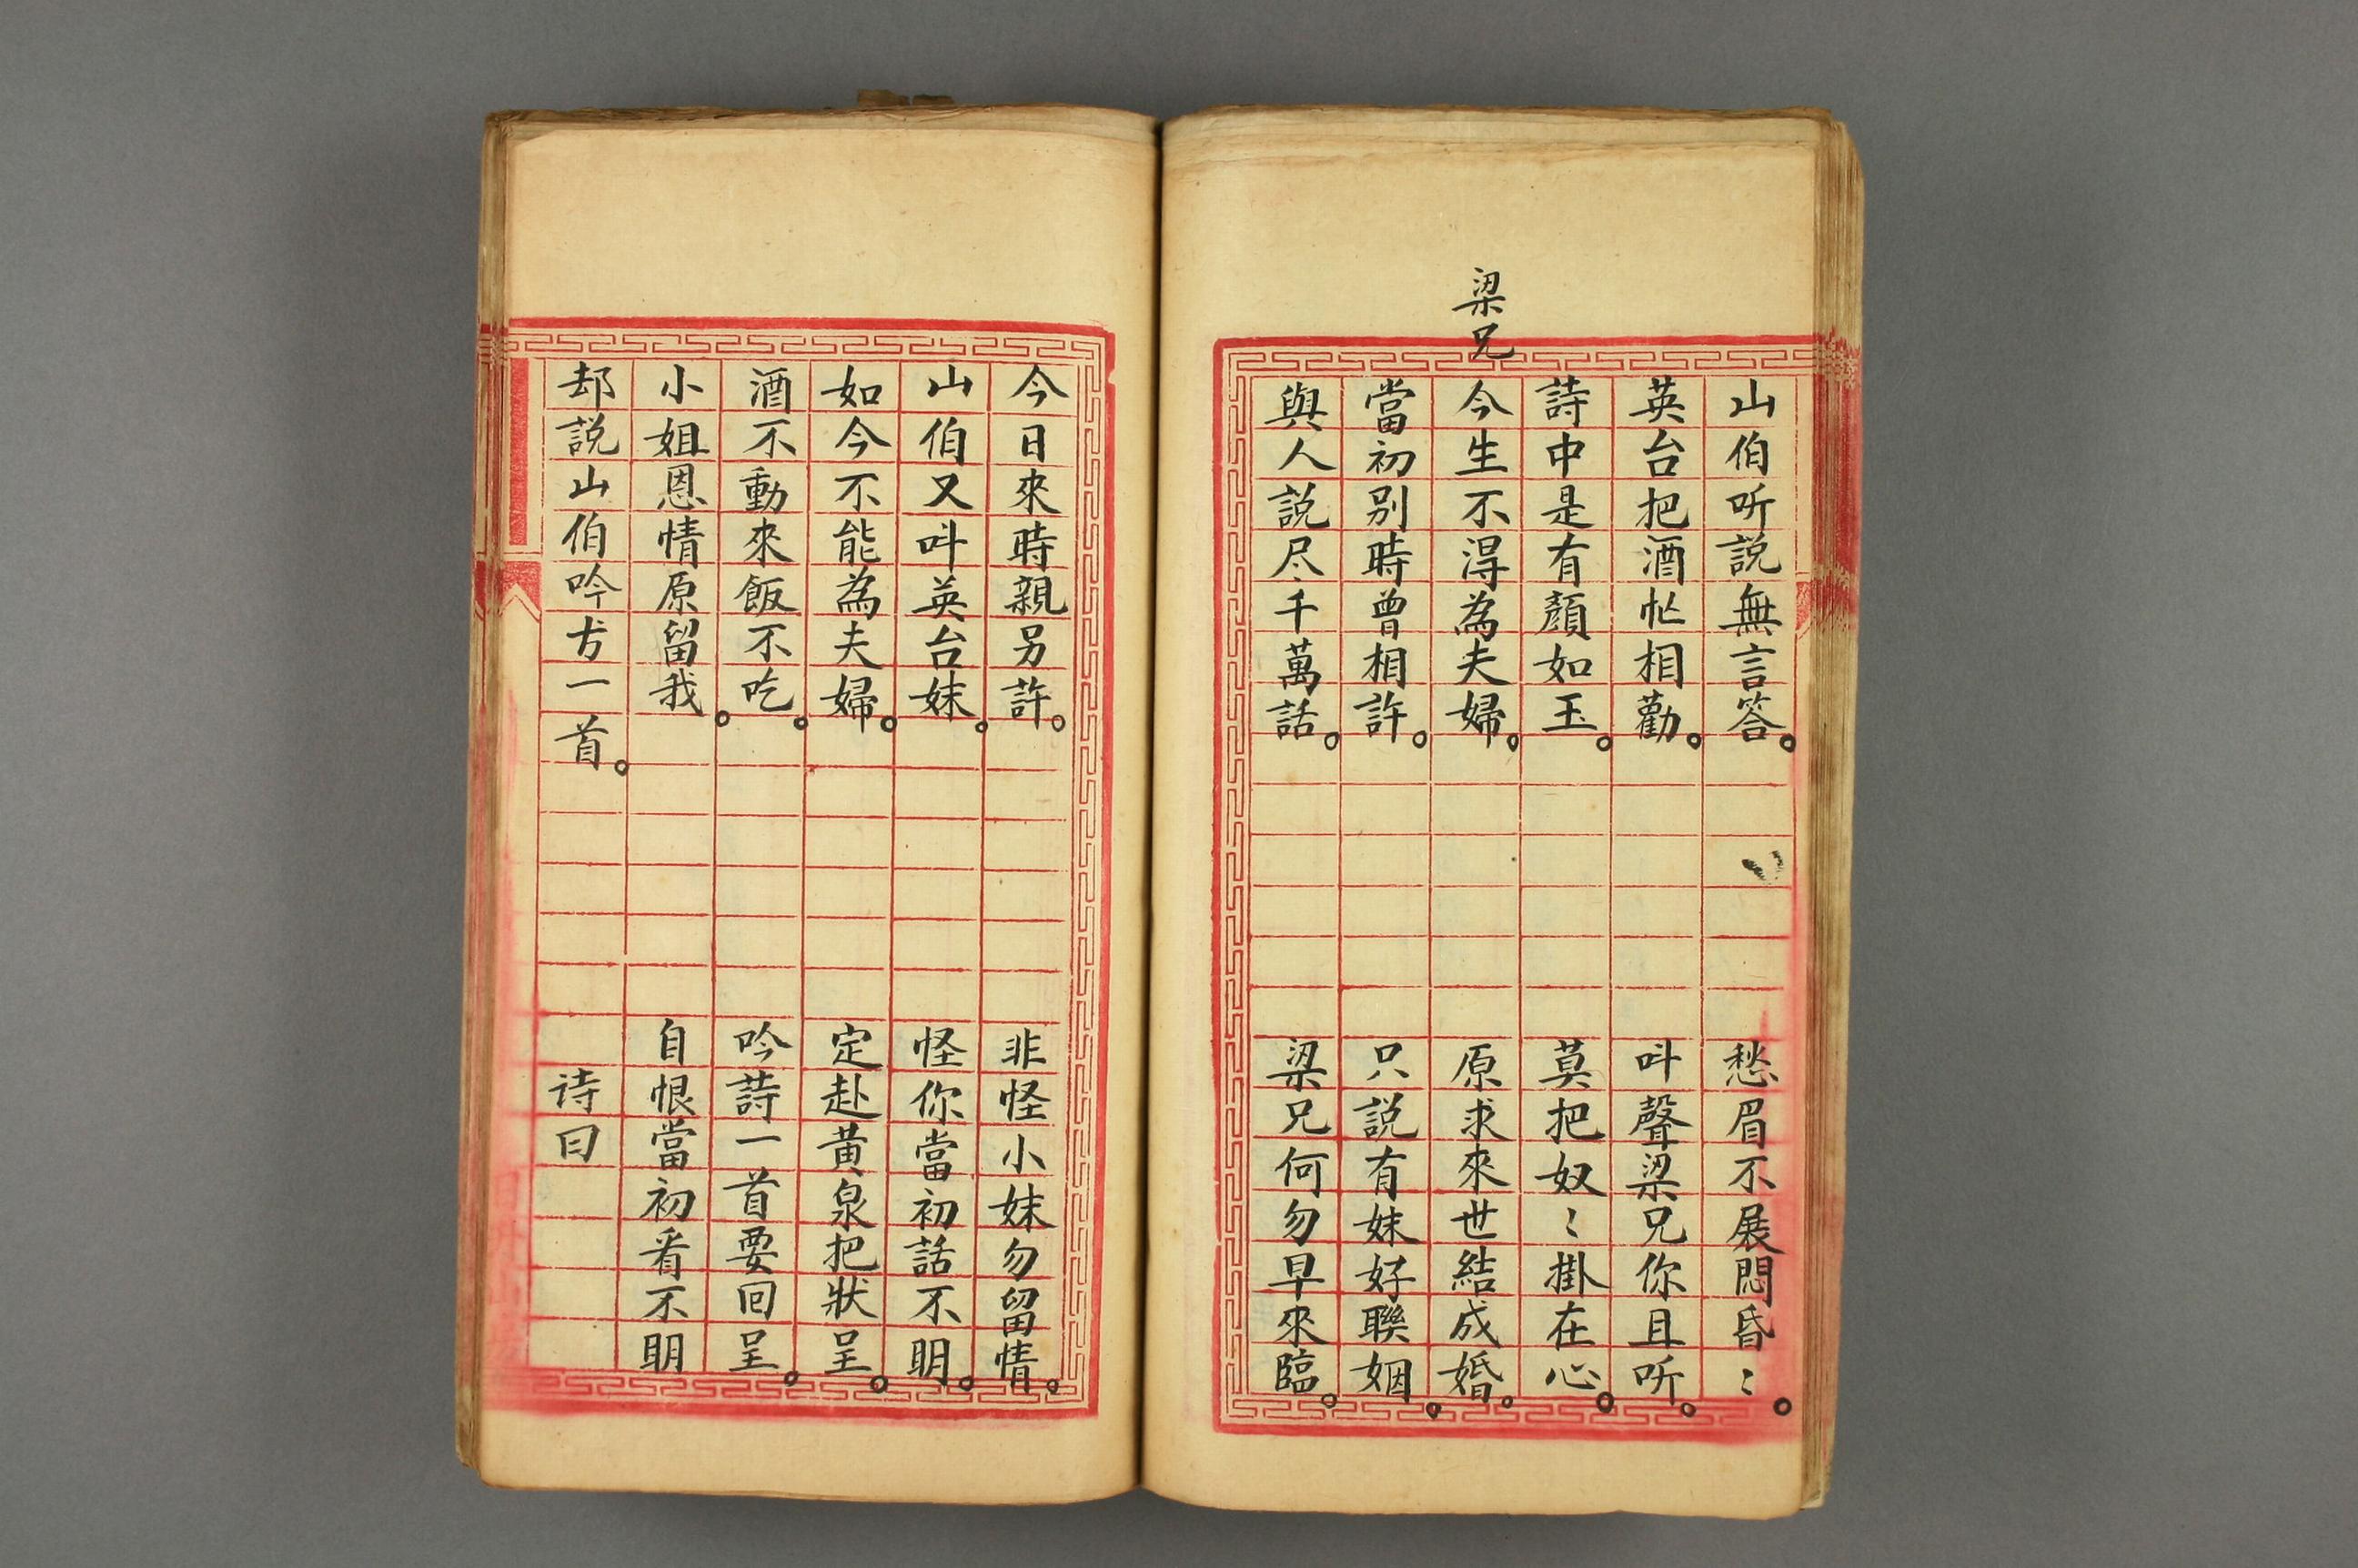 山伯听説無言答。愁眉不展悶昏〻。
英台把酒忙相勸。叫聲梁兄你且听。
詩中是有顏如玉。莫把奴〻掛在心。
梁兄今生不淂為夫婦。原求來世結成婚。
當初別時曾相許。只説有妹好聯姻。
與人説尽千萬話。梁兄何勿早來臨。
今日來時親另許。非怪小妹勿留情。
山伯又呌英台妹。怪你當初話不明。
如今不能為夫婦。定赴黃泉把狀呈。
酒不動來飯不吃。吟詩一首要回呈。
小姐恩情原留我。自恨當初看不明
却説山伯吟一首。诗曰